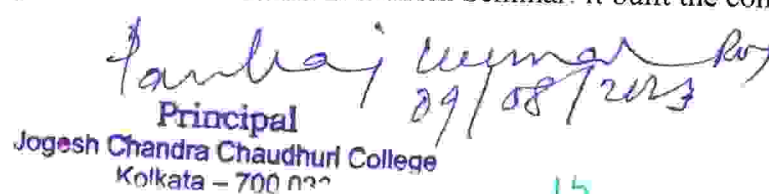 Seminar. It built the con
Pankaj Kumar Roy
09/08/2023
Principal
Jogesh Chandra Chaudhuri College
Kolkata – 700 033
15